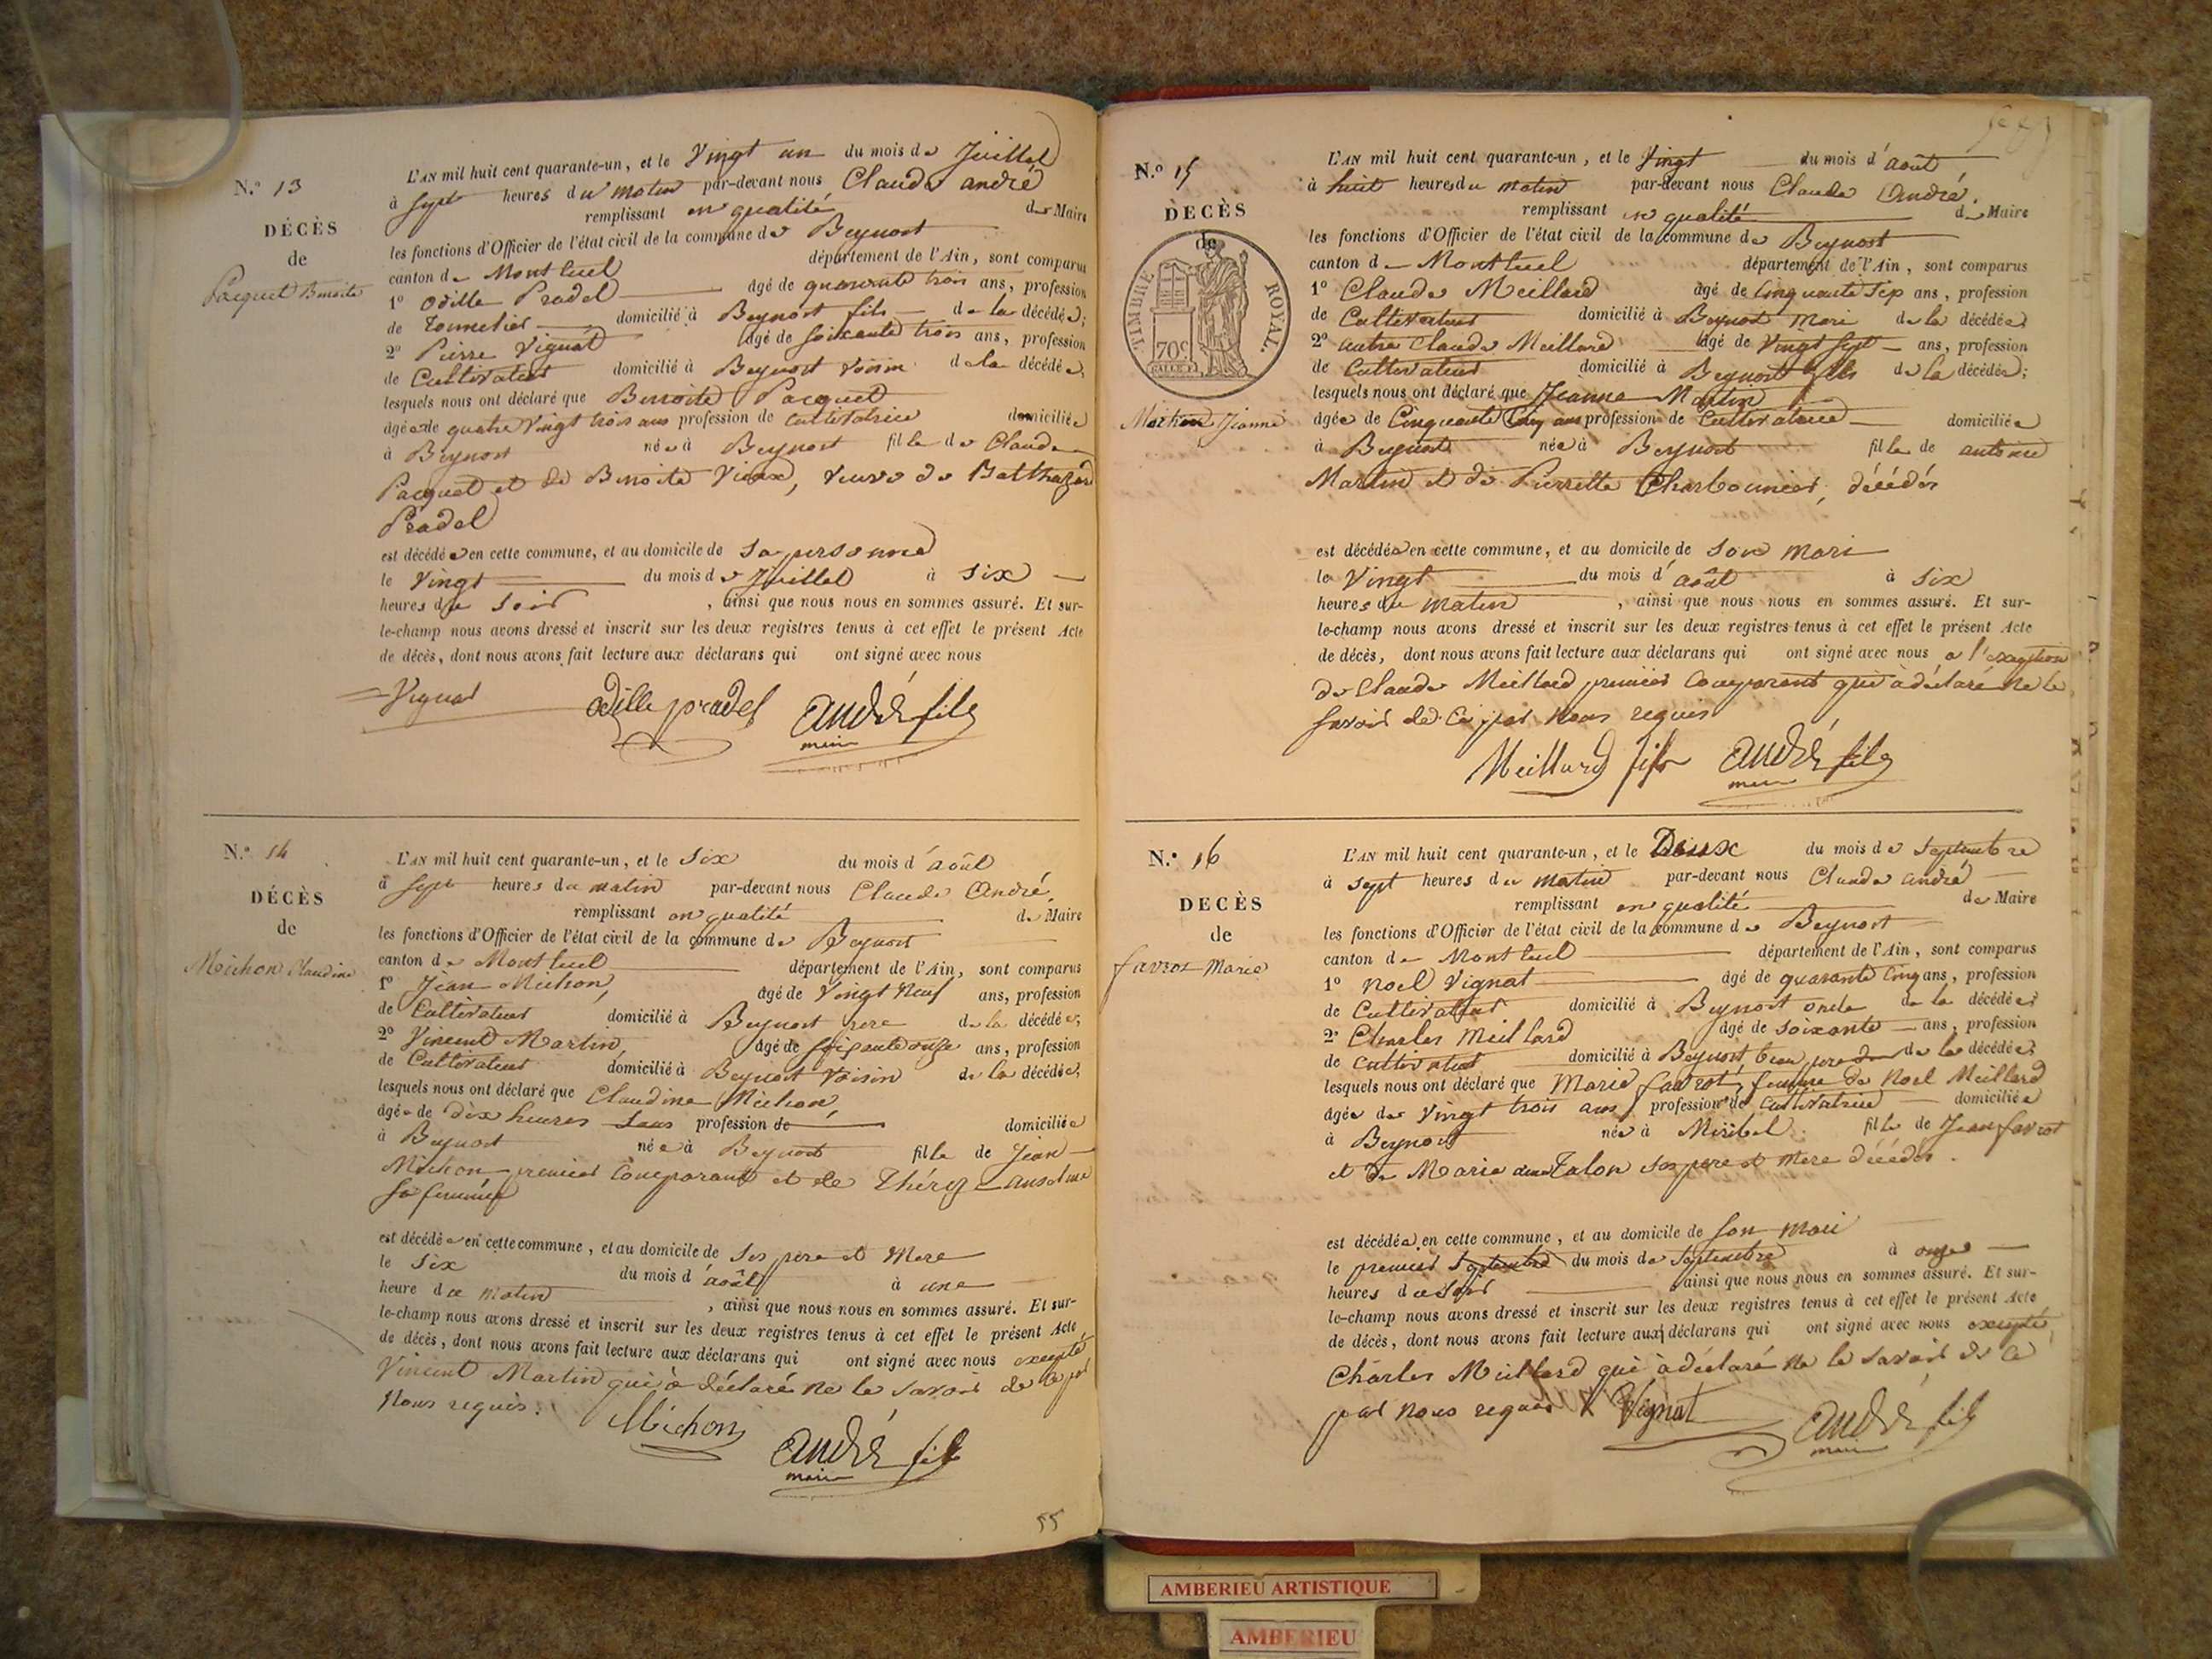 N.º 13
DÉCÈS
de
Pacquet Benoite
L'AN mil huit cent quarante-un, et le Vingt un du mois de Juillet
à sept heures du matin par-devant nous Claude andré
remplissant en qualité de Maire
les fonctions d'Officier de l'état civil de la commune de Beynost
canton de Montluel département de l'Ain, sont comparus
1º Odille Pradel âgé de quarante trois ans, profession
de Tonnelier domicilié à Beynost fils de la décédée;
2º Pierre Vignat âgé de soixante trois ans, profession
de Cultivateur domicilié à Beynost voisin de la décédée,
lesquels nous ont déclaré que Benoite Pacquet
âgée de quatre Vingt trois ans profession de Cultivatrice domiciliée
à Beynost née à Beynost fille de Claude
Pacquet et de Benoite Vieux, veuve de Balthazard
Pradel
est décédée en cette commune, et au domicile de sa personne
le Vingt du mois de Juillet à six
heures du soir, ainsi que nous nous en sommes assuré. Et sur-
le-champ nous avons dressé et inscrit sur les deux registres tenus à cet effet le présent Acte
de décès, dont nous avons fait lecture aux déclarans qui ont signé avec nous
Vignat odille pradel andré fils
maire
N.º 14
DÉCÈS
de
Michon Claudine
L'AN mil huit cent quarante-un, et le six du mois d'août
à sept heures du matin par-devant nous Claude André,
remplissant en qualité de Maire
les fonctions d'Officier de l'état civil de la commune de Beynost
canton de Montluel département de l'Ain, sont comparus
1º Jean Michon, âgé de Vingt Neuf ans, profession
de Cultivateur domicilié à Beynost pere de la décédée,
2º Vincent Martin, âgé de soixante onze ans, profession
de Cultivateur domicilié à Beynost Voisin de la décédée,
lesquels nous ont déclaré que Claudine Michon,
âgée de dix heures sans profession de domiciliée
à Beynost née à Beynost fille de Jean
Michon premier Comparant et de Thérèze anselme
sa femme
est décédée en cette commune, et au domicile de ses pere et Mere
le six du mois d'août à une
heure du matin, ainsi que nous nous en sommes assuré. Et sur-
le-champ nous avons dressé et inscrit sur les deux registres tenus à cet effet le présent Acte
de décès, dont nous avons fait lecture aux déclarans qui ont signé avec nous excepté
Vincent Martin qui à déclaré ne le savoir de ce par
Nous requis.
Michon andré fils
maire
55
N.º 15
DÉCÈS
de
TIMBRE ROYAL.
70c
Jeanne
L'AN mil huit cent quarante-un, et le Vingt du mois d'août
à huit heures du matin par-devant nous Claude André,
remplissant en qualité de Maire
les fonctions d'Officier de l'état civil de la commune de Beynost
canton de Montluel département de l'Ain, sont comparus
1º Claude Meillard âgé de Cinquante Sep ans, profession
de Cultivateur domicilié à Beynost mari de la décédée,
2º autre Claude Meillard âgé de Vingt sept ans, profession
de Cultivateur domicilié à Beynost fils de la décédée;
lesquels nous ont déclaré que Jeanne Martin
âgée de Cinquante Cinq ans profession de Cultivatrice domiciliée
à Beynost née à Beynost fille de antoine
Martin et de Pierrette Charbonnier, décédés
est décédée en cette commune, et au domicile de son mari
le Vingt du mois d'août à six
heures du matin, ainsi que nous nous en sommes assuré. Et sur-
le-champ nous avons dressé et inscrit sur les deux registres tenus à cet effet le présent Acte
de décès, dont nous avons fait lecture aux déclarans qui ont signé avec nous a l'exception
de Claude Meillard premier Comparant qui à déclaré Ne le
savoir de Ce par Nous requis
Meillard fils andré fils
maire
N.º 16
DECÈS
de
favrot Marie
L'AN mil huit cent quarante-un, et le Deux du mois de septembre
à sept heures du matin par-devant nous Claude andré
remplissant en qualité de Maire
les fonctions d'Officier de l'état civil de la commune de Beynost
canton de Montluel département de l'Ain, sont comparus
1º Noel Vignat âgé de quarante Cinq ans, profession
de Cultivateur domicilié à Beynost oncle de la décédée,
2º Charles Meillard âgé de soixante ans, profession
de Cultivateur domicilié à Beynost beau pere de la décédée,
lesquels nous ont déclaré que Marie favrot, femme de Noel Meillard
âgée de Vingt trois ans, profession de Cultivatrice domiciliée
à Beynost née à Miribel fille de Jean favrot
et de Marie Talon ses pere et Mere décédés.
est décédée en cette commune, et au domicile de son mari
le premier septembre du mois de septembre à onze
heures du soir ainsi que nous nous en sommes assuré. Et sur-
le-champ nous avons dressé et inscrit sur les deux registres tenus à cet effet le présent Acte
de décès, dont nous avons fait lecture aux déclarans qui ont signé avec nous excepté
Charles Meillard qui à déclaré ne le savoir de ce
par nous requis Vignat andré fils
maire
AMBERIEU ARTISTIQUE
AMBERIEU